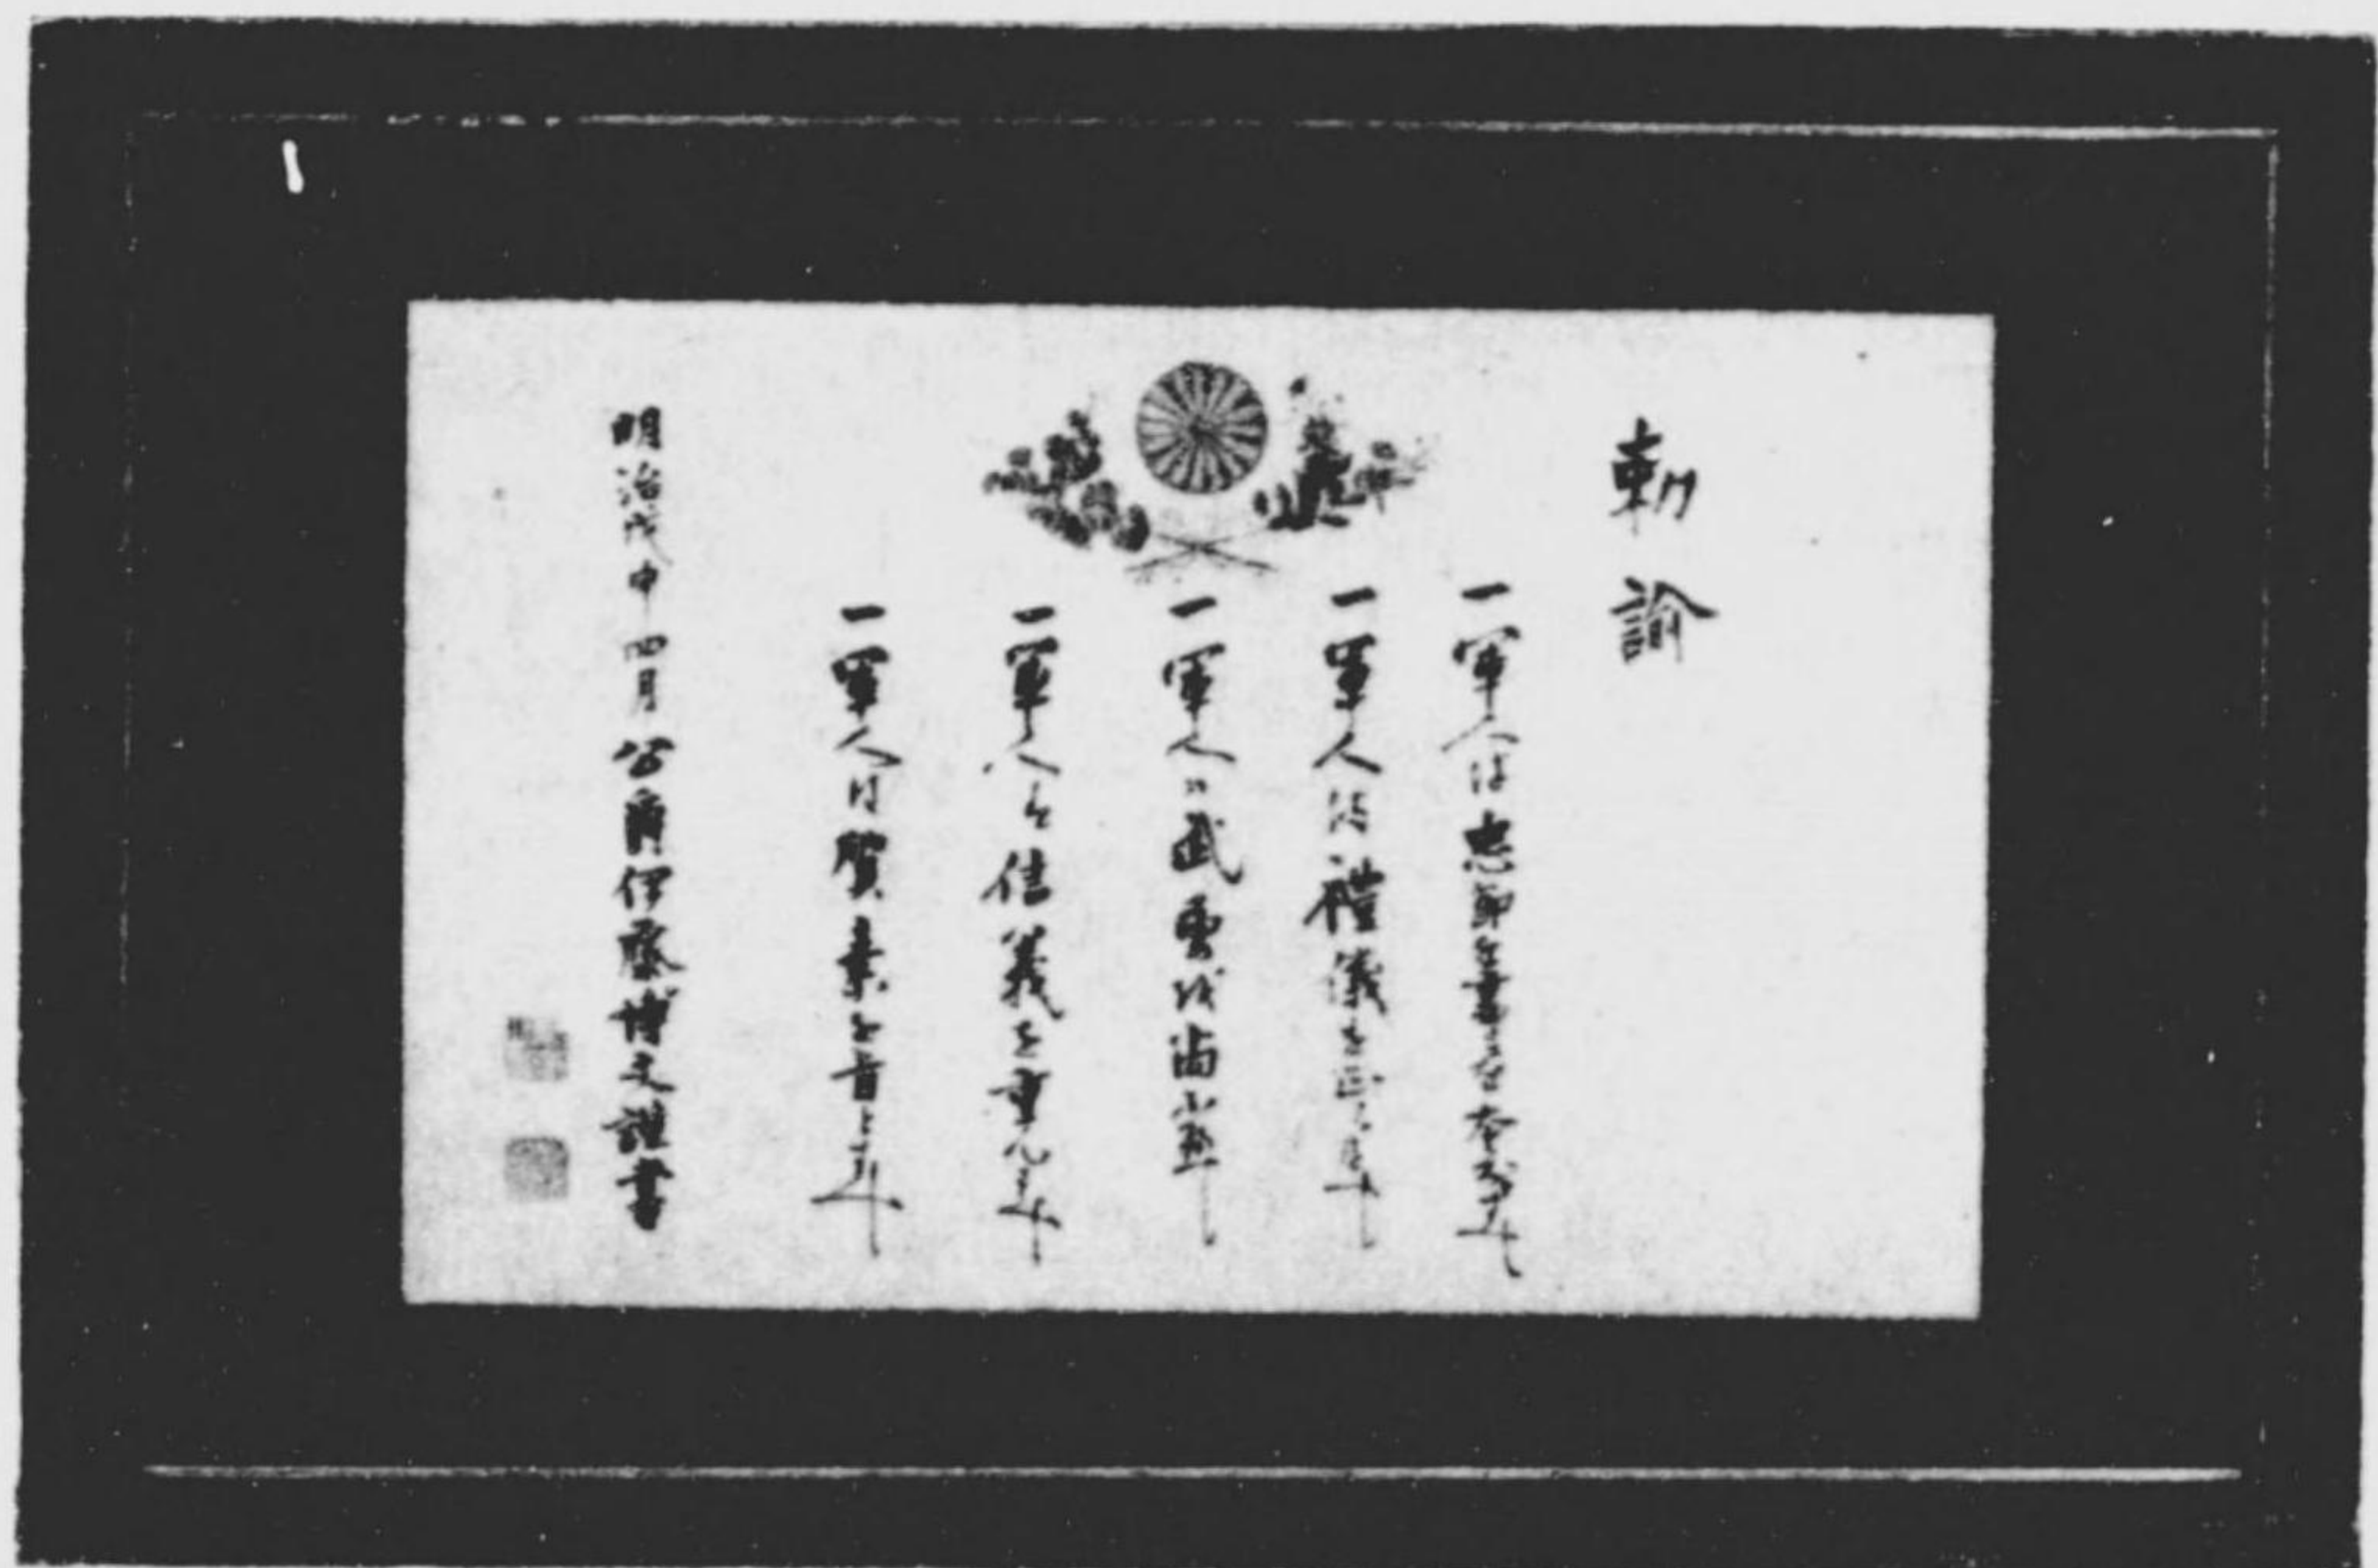 勅諭
一軍人は忠節を盡すを本分とすへし
一軍人は禮儀を正くすへし
一軍人は武勇を尚ふへし
一軍人は信義を重んすへし
一軍人は質素を旨とすへし
明治戊申四月 公爵伊藤博文謹書